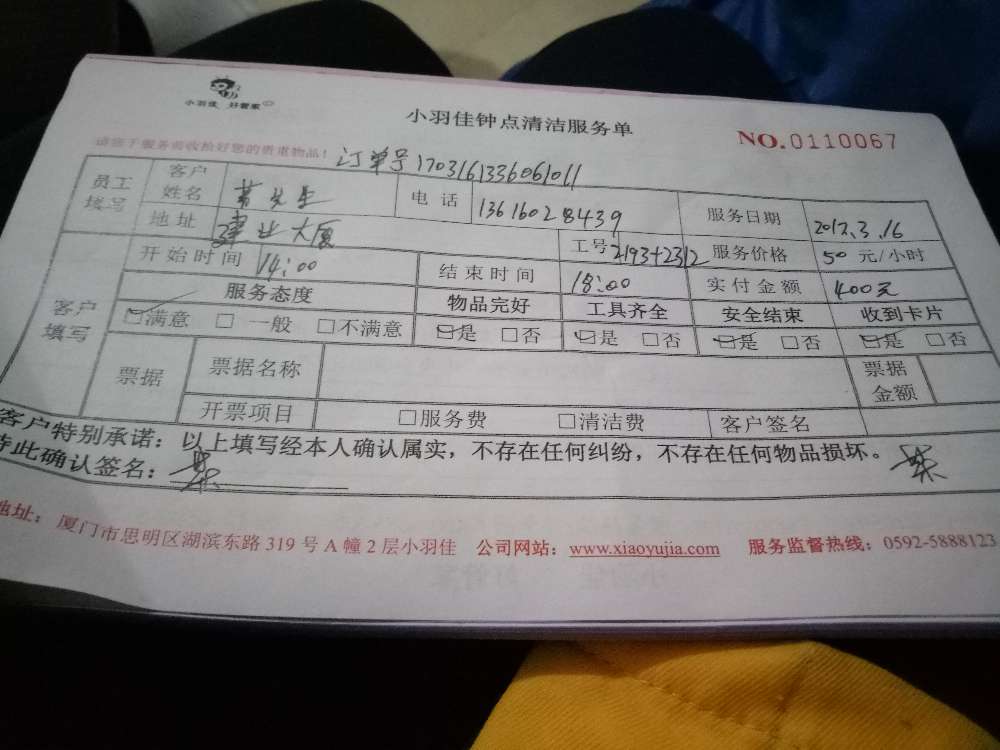 小羽佳 好管家
小羽佳钟点清洁服务单
NO.0110067
请您于服务前收拾好您的贵重物品！ 订单号170316133606 1011
员工填写 客户姓名 黄先生 电话 13616028439 服务日期 2017.3.16
地址 建业大厦 工号 2193+2312 服务价格 50 元/小时
客户填写 开始时间 14:00 结束时间 18:00 实付金额 400元
服务态度 物品完好 工具齐全 安全结束 收到卡片
☑满意 □一般 □不满意 ☑是 □否 ☑是 □否 ☑是 □否 ☑是 □否
票据 票据名称 票据金额
开票项目 □服务费 □清洁费 客户签名
客户特别承诺：以上填写经本人确认属实，不存在任何纠纷，不存在任何物品损坏。
特此确认签名：
地址：厦门市思明区湖滨东路 319 号 A 幢 2 层小羽佳 公司网站：www.xiaoyujia.com 服务监督热线：0592-5888123